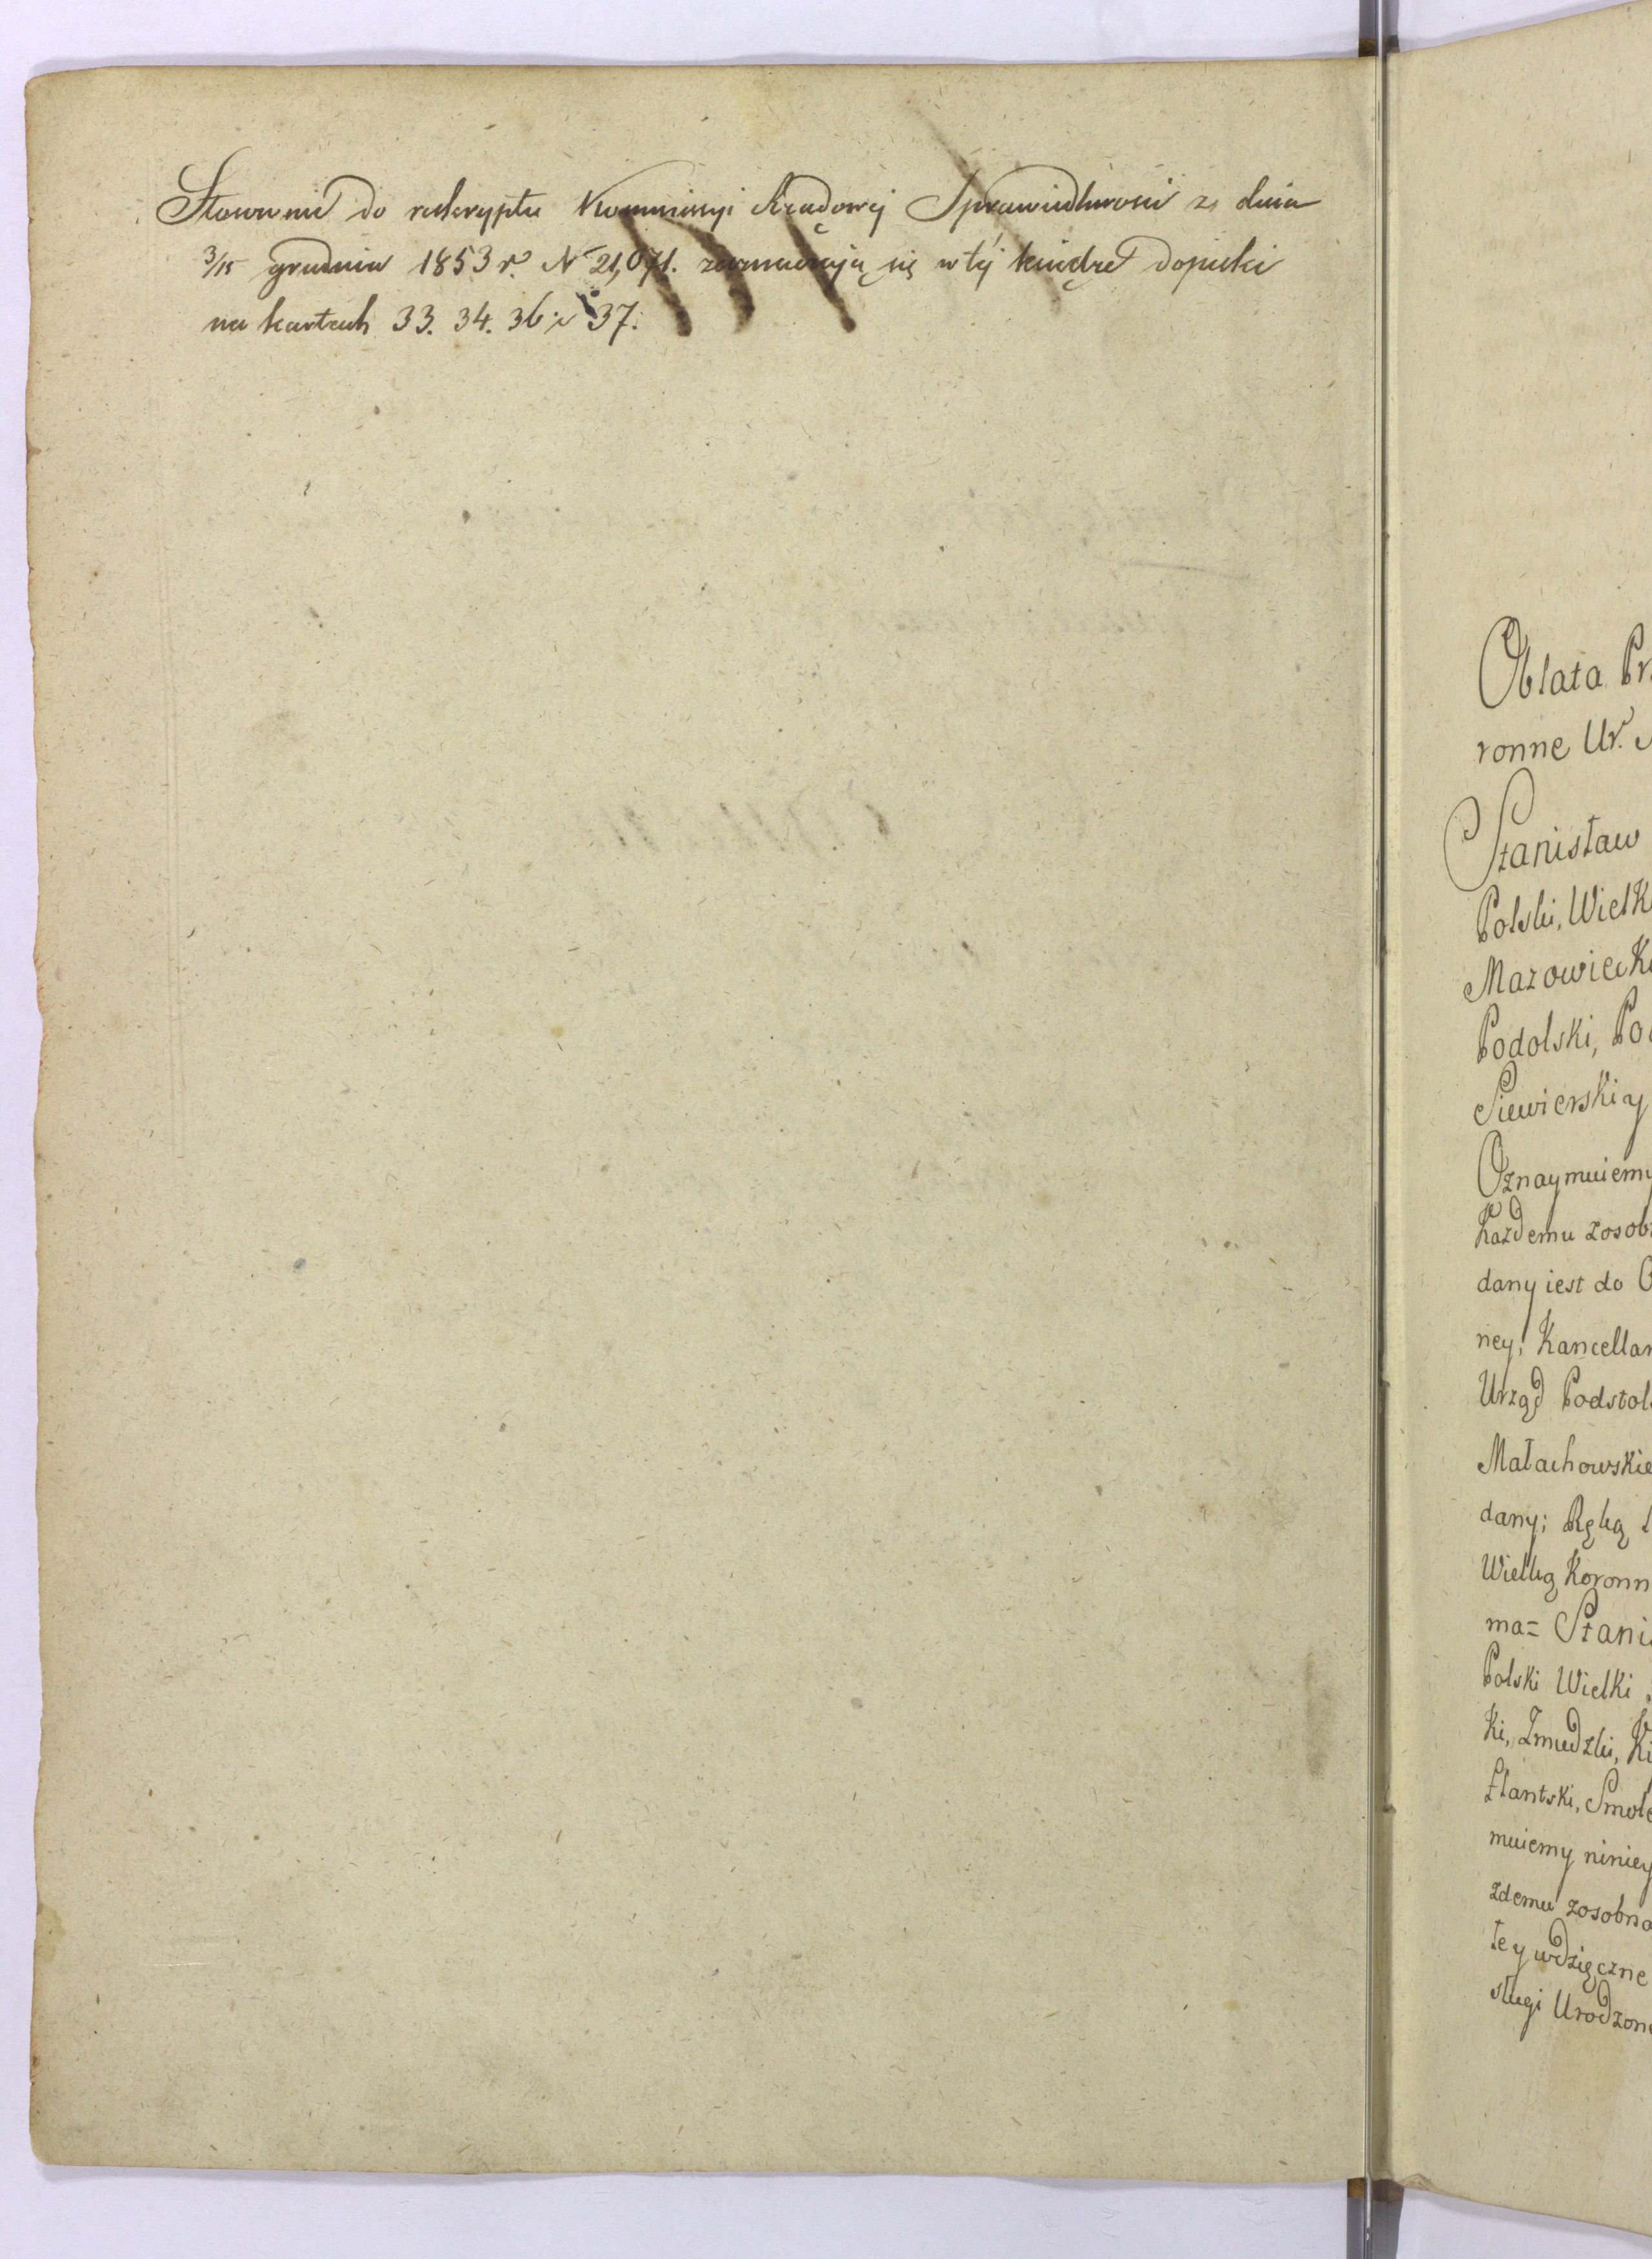 Stosownie do reskryptu Kommissyi Rządowej Sprawiedliwości z dnia
3/15 grudnia 1853 r. N 21,071. zaznaczają się w téj księdze dopiski
na kartach 33. 34. 36 i 37.
Oblata Pr
ronne Ur.
Stanisław
Polski, Wielk
Mazowiecki
Podolski, Po
Siewierski y
Oznaymuiemy
Każdemu zosob
dany iest do
ney, Kancellar
Urząd Podstol
Małachowskie
dany; Ręką
Wielką Koronn
ma= Stani
Polski Wielki
ki, Żmudzki, Ki
flantski, Smole
muiemy niniey
żdemu zosobna
łe y wdzięczne
sługi Urodzone